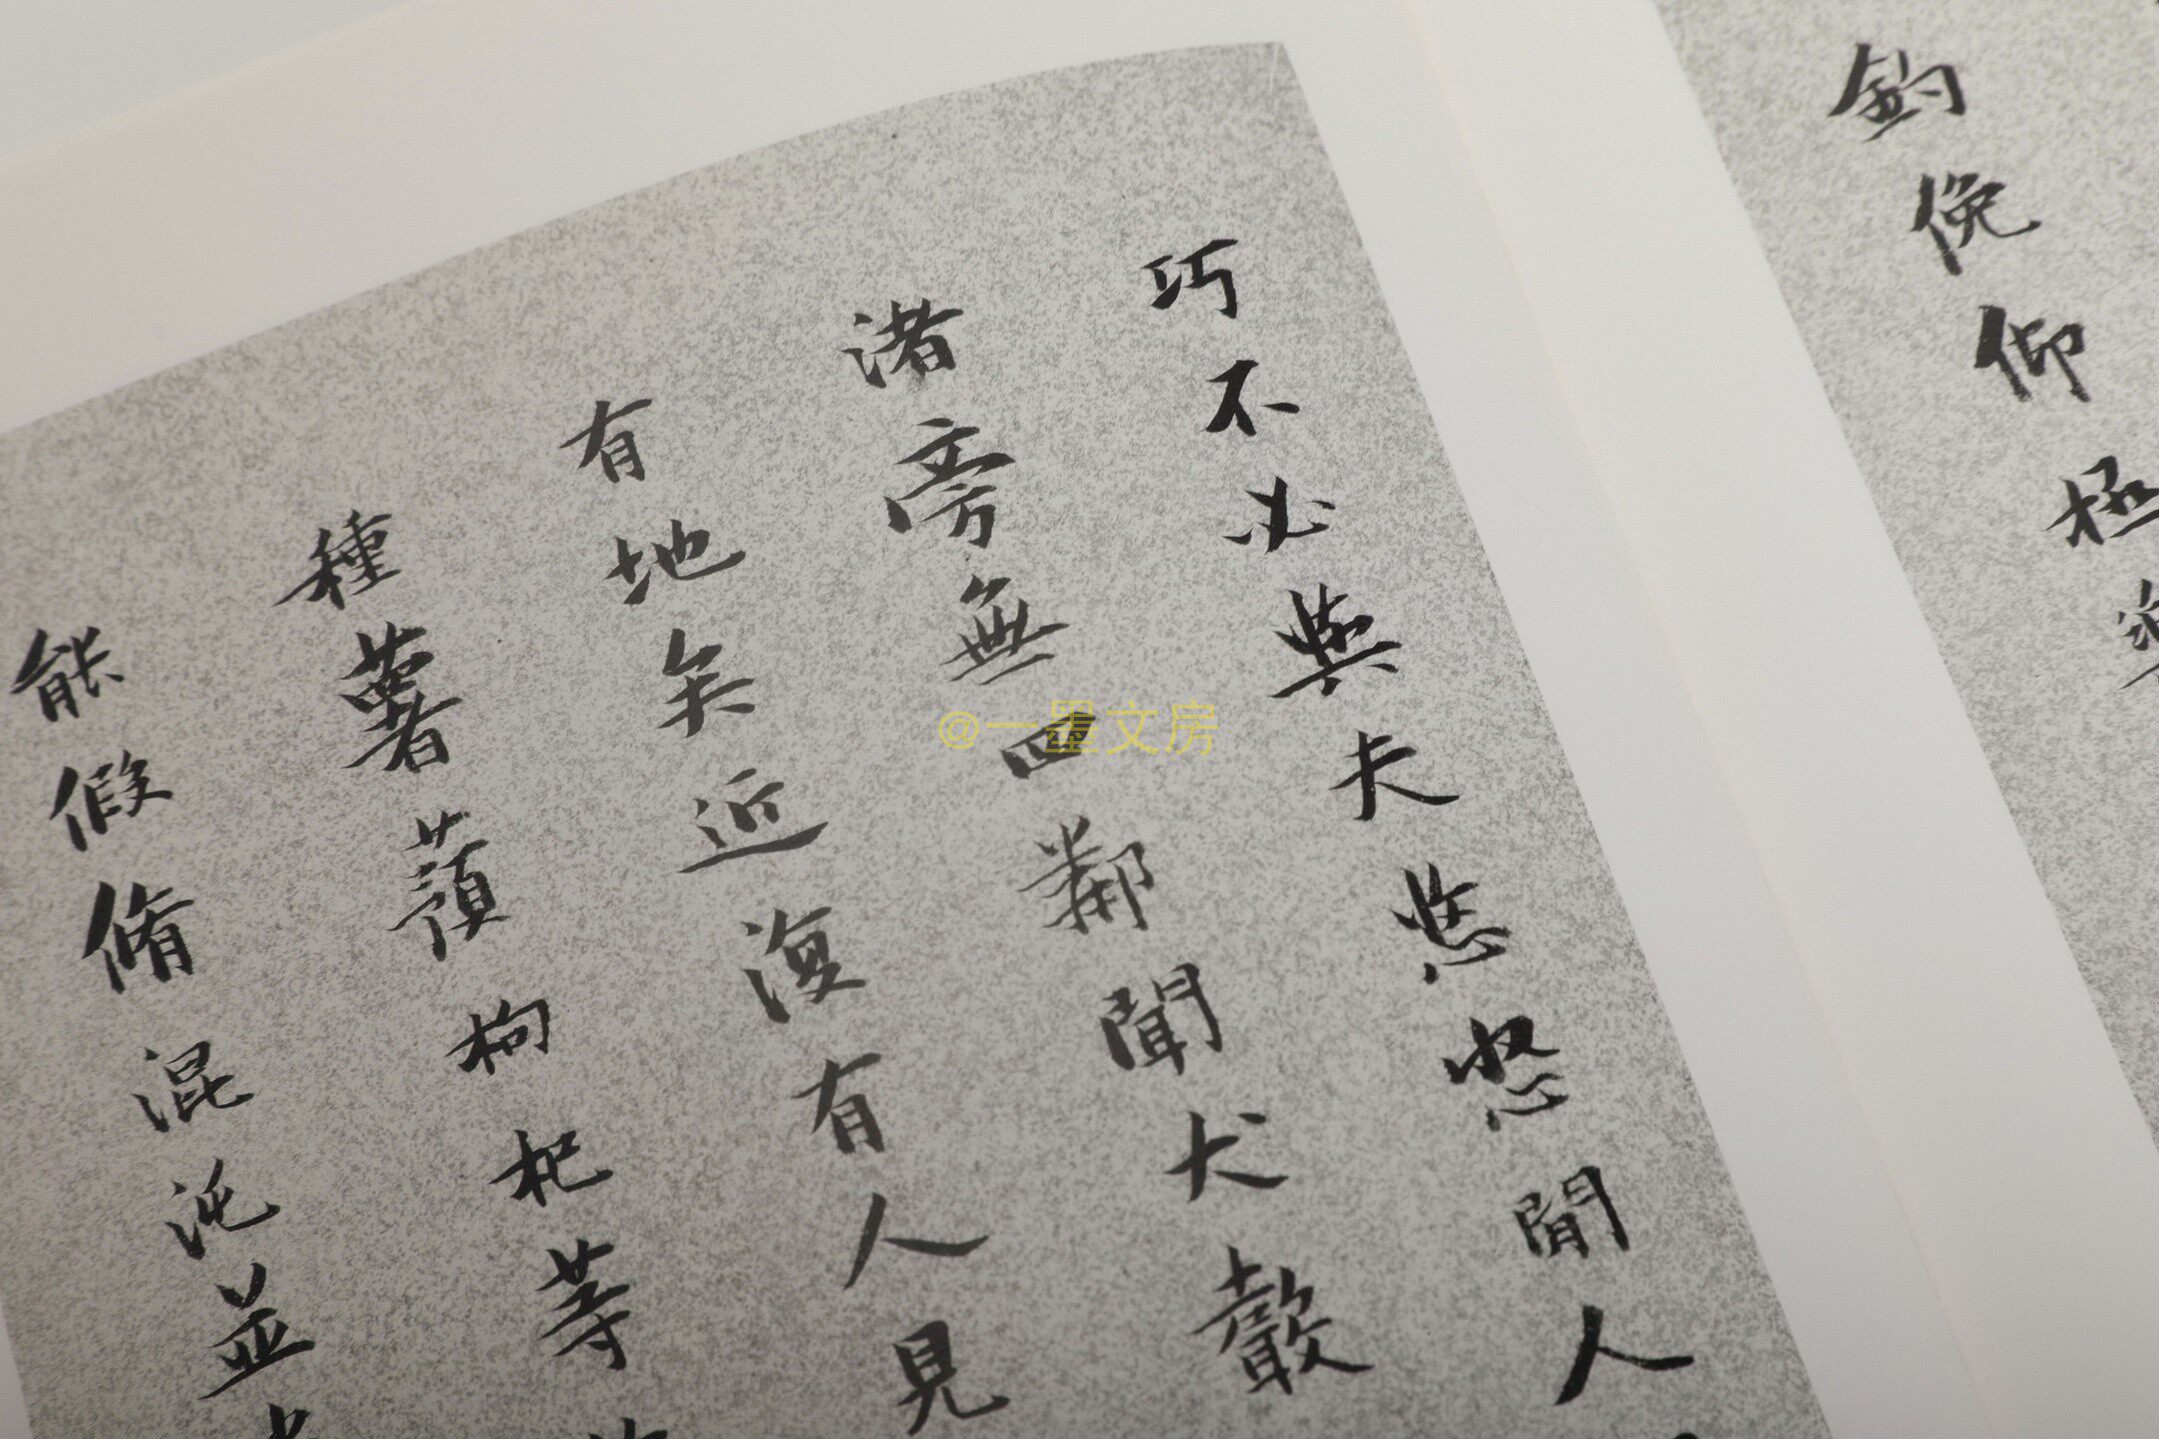 釣俛仰極
巧不必與夫悠悠間人
渚旁無四鄰聞犬聲
有地矣近復有人見
種薯蕷枸杞等
能假脩混沌並
@一墨文房